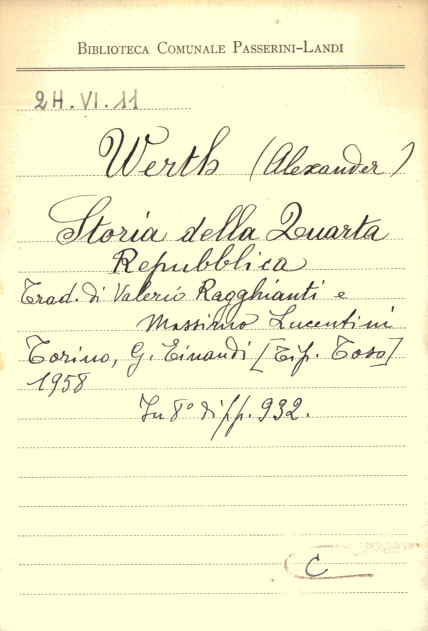 BIBLIOTECA COMUNALE PASSERINI-LANDI
2H.VI.11
Werth (Alexander)
Storia della Quarta
Repubblica
Trad. di Valerio Ragghianti e
Massimo Lucentini
Torino, G. Einaudi [Tip. Toso]
1958
In 8° di pp. 932.
C